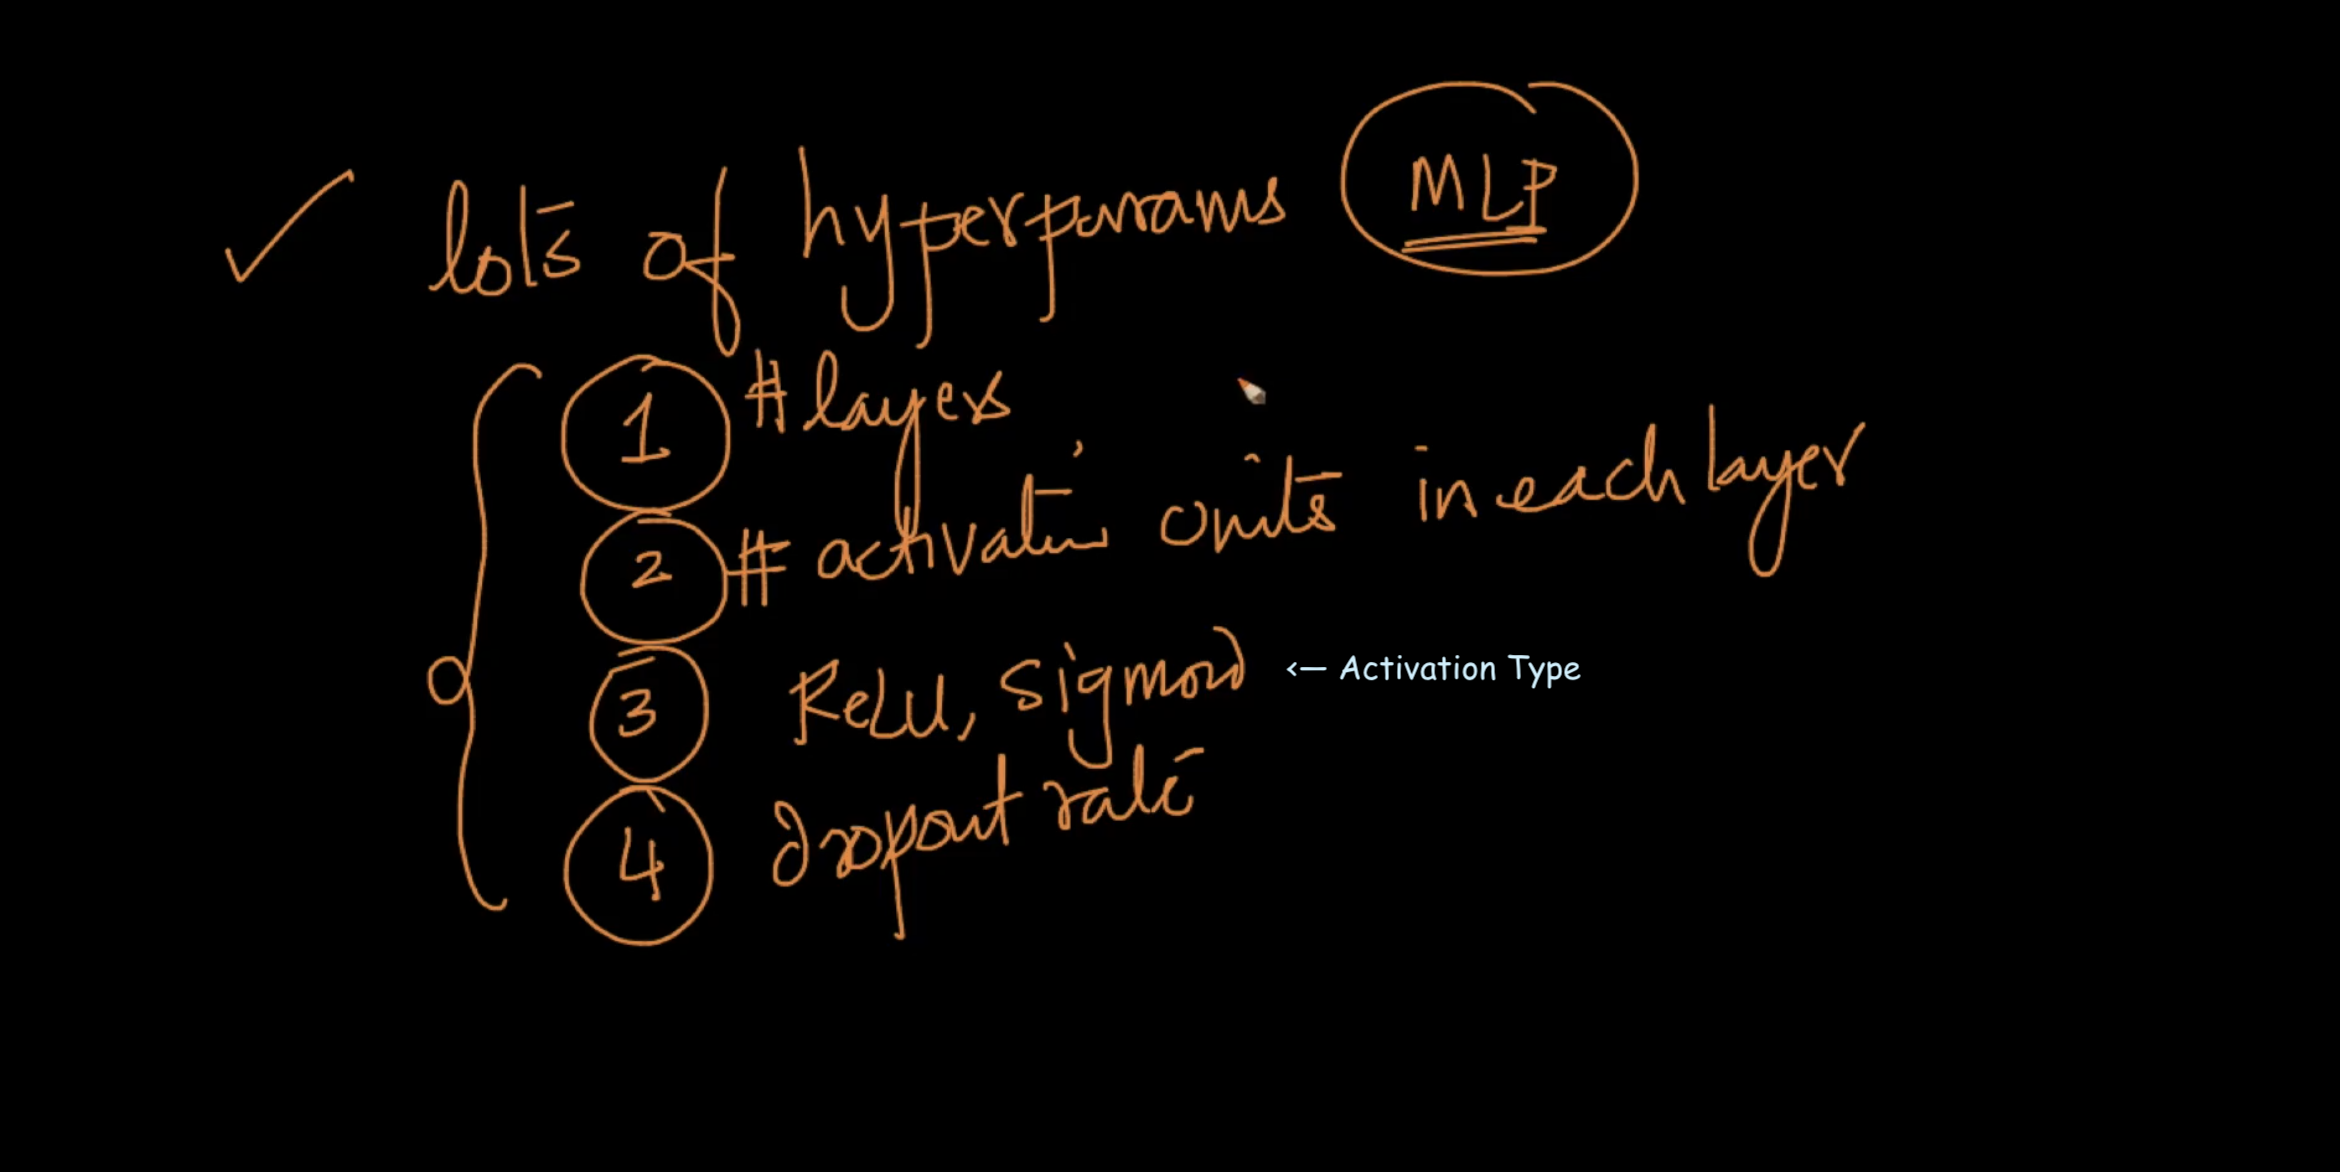 ✓ lots of hyperparams MLP
1 # layers
2 # activation units in each layer
3 Relu, sigmoid <— Activation Type
4 dropout rate